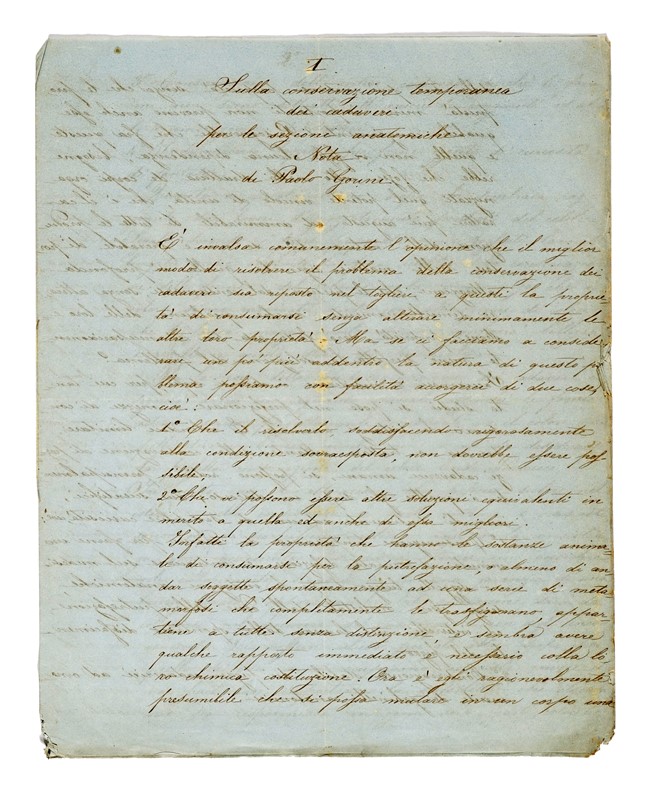 1
Sulla conservazione temporanea
dei cadaveri
per le sezioni anatomiche
Nota
di Paolo Gorini
È invalsa comunemente l'opinione che il miglior
modo di risolvere il problema della conservazione dei
cadaveri sia riposto nel togliere a questi la proprie
tà di consumarsi senza alterare minimamente le
altre loro proprietà. Ma se ci facciamo a conside
rare un po' più addentro la natura di questo pro
blema possiamo con facilità accorgerci di due cose,
cioè:
1.° Che il risolverlo, soddisfacendo rigorosamente
alla condizione sovraesposta, non dovrebbe essere pos
sibile;
2.° Che vi possono essere altre soluzioni equivalenti in
merito a quella ed anche di essa migliori.
Infatti la proprietà che hanno le sostanze anima
li di consumarsi per la putrefazione, o almeno di an
dar soggette spontaneamente ad una serie di meta
morfosi che completamente le trasfigurano, appar
tiene a tutte senza distinzione, e sembra avere
qualche rapporto immediato e necessario colla lo
ro chimica costituzione. Ora è egli ragionevolmente
presumibile che si possa mutare in un corpo una